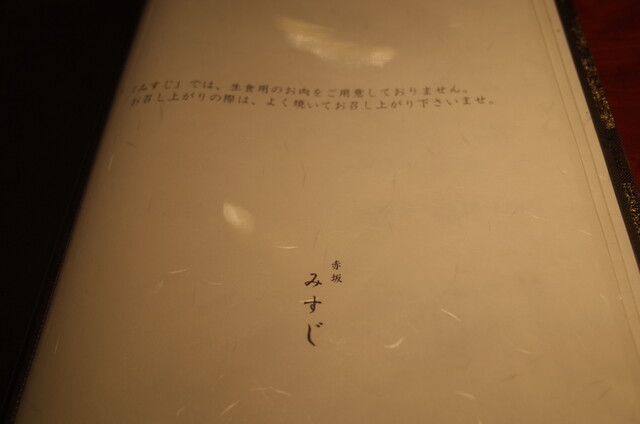 「みすじ」では、生食用のお肉をご用意しておりません。
お召し上がりの際は、よく焼いてお召し上がり下さいませ。
赤坂
みすじ